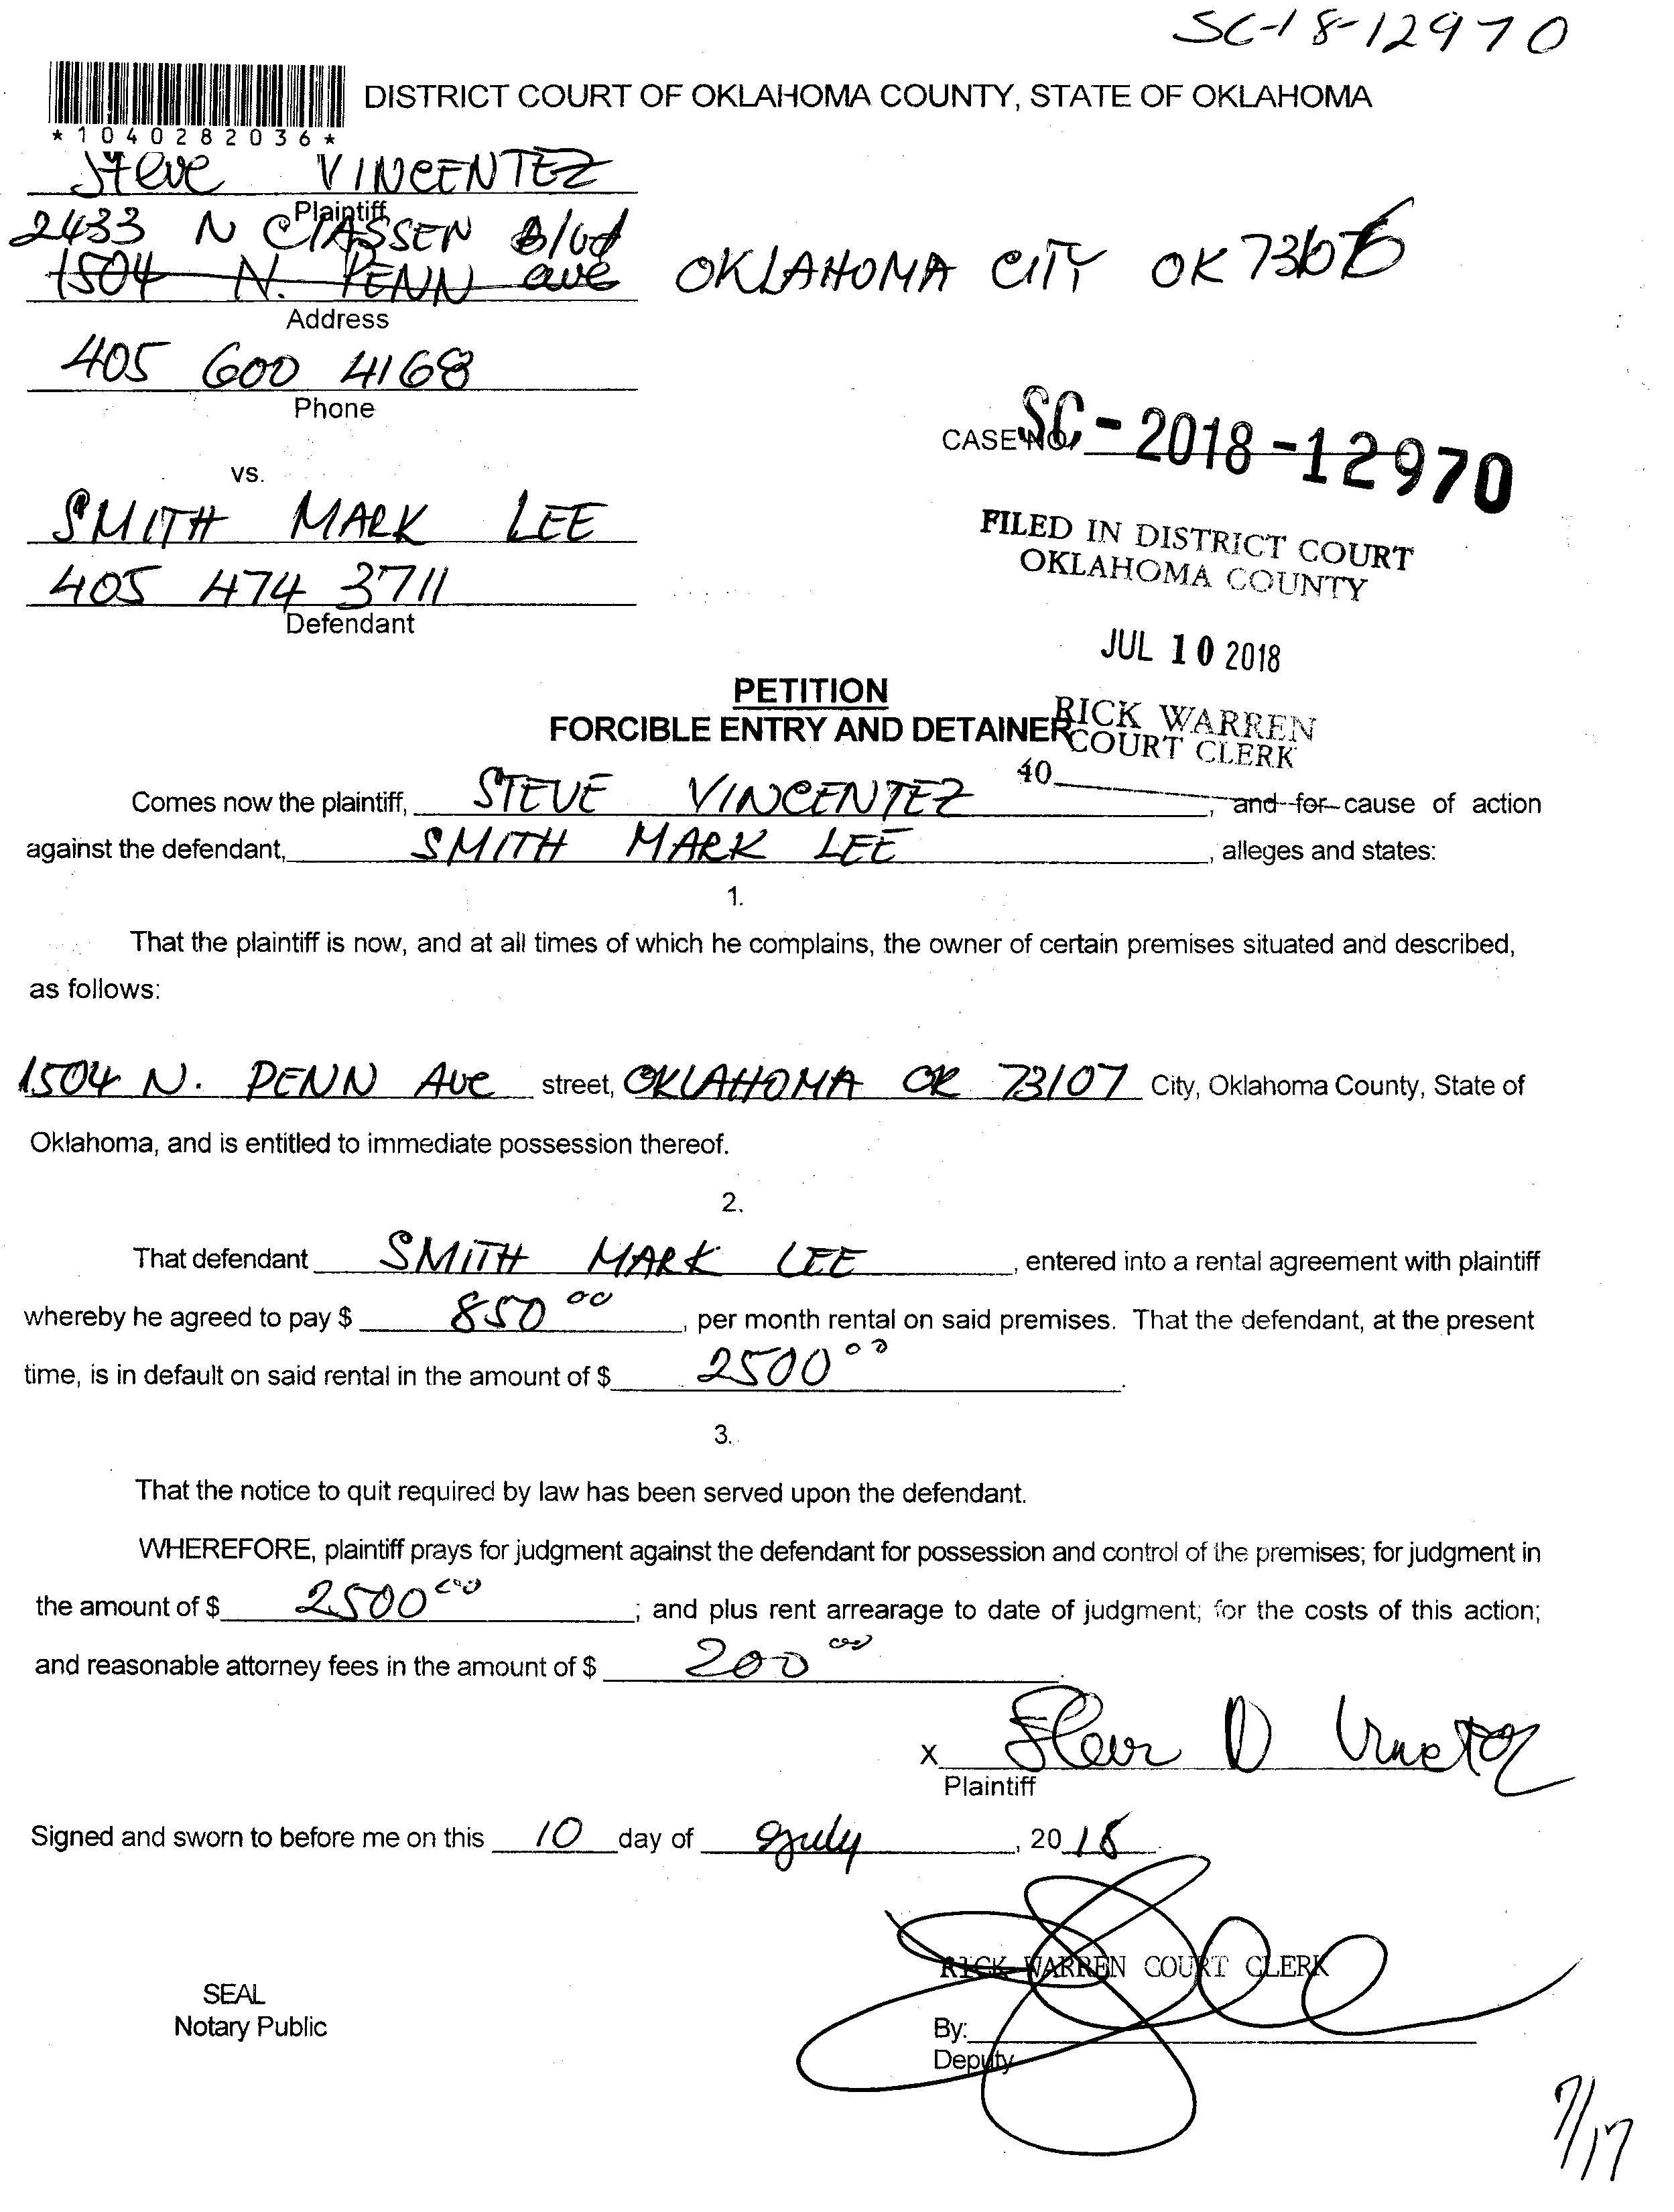 SC-18-12970
DISTRICT COURT OF OKLAHOMA COUNTY, STATE OF OKLAHOMA
*1040282036*
Steve VINCENTEZ
Plaintiff
2433 N ClASSEN Blvd
1504 N. PENN ave OKLAHOMA CITY OK
Address
405 600 4168
Phone
CASE NO. SC-2018-12970
vs.
SMITH MARK LEE
FILED IN DISTRICT COURT
OKLAHOMA COUNTY
405 474 3711
Defendant
JUL 10 2018
PETITION
FORCIBLE ENTRY AND DETAINER
RICK WARREN
COURT CLERK
40
Comes now the plaintiff, STEVE VINCENTEZ, and for cause of action
against the defendant, SMITH MARK LEE, alleges and states:
1.
That the plaintiff is now, and at all times of which he complains, the owner of certain premises situated and described,
as follows:
1504 N. PENN Ave street, OKLAHOMA OK 73107 City, Oklahoma County, State of
Oklahoma, and is entitled to immediate possession thereof.
2.
That defendant SMITH MARK LEE, entered into a rental agreement with plaintiff
whereby he agreed to pay $ 850 00, per month rental on said premises. That the defendant, at the present
time, is in default on said rental in the amount of $ 2500 00.
3.
That the notice to quit required by law has been served upon the defendant.
WHEREFORE, plaintiff prays for judgment against the defendant for possession and control of the premises; for judgment in
the amount of $ 2500 00; and plus rent arrearage to date of judgment; for the costs of this action;
and reasonable attorney fees in the amount of $ 200 00.
x
Plaintiff
Signed and sworn to before me on this 10 day of July, 2018
RICK WARREN COURT CLERK
SEAL
Notary Public
By:
Deputy
7/17